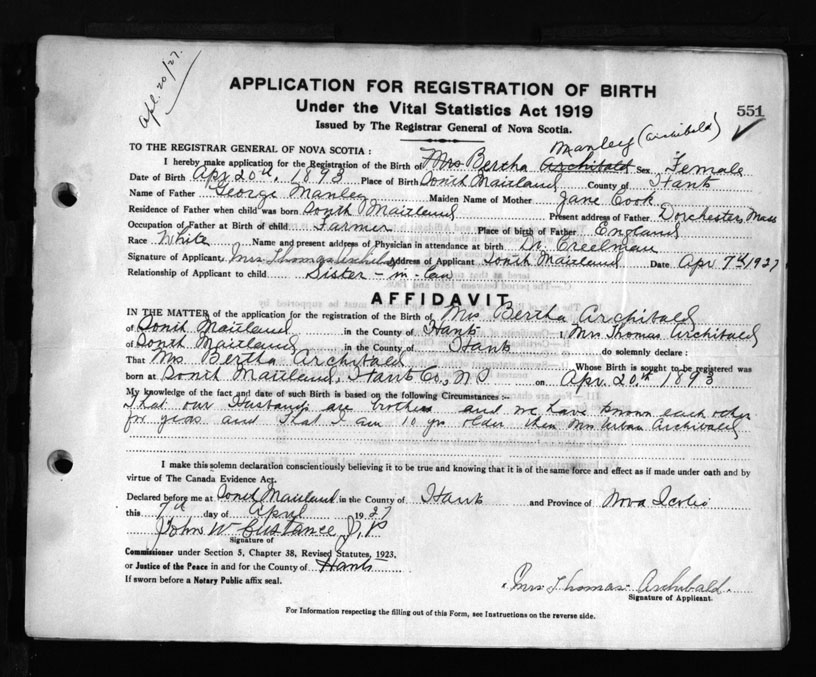 Apl. 20/27.
APPLICATION FOR REGISTRATION OF BIRTH
Under the Vital Statistics Act 1919
551
Issued by The Registrar General of Nova Scotia.
Manley (Archibald)
TO THE REGISTRAR GENERAL OF NOVA SCOTIA :
I hereby make application for the Registration of the Birth of Mrs Bertha Archibald Sex Female
Date of Birth Apr 20th, 1893 Place of Birth South Maitland County of Hants
Name of Father George Manley Maiden Name of Mother Jane Cook
Residence of Father when child was born South Maitland Present address of Father Dorchester Mass
Occupation of Father at Birth of child Farmer Place of birth of Father England
Race White Name and present address of Physician in attendance at birth Dr. Creelman
Signature of Applicant Mrs Thomas Archibald Address of Applicant South Maitland Date Apr 7th 1927
Relationship of Applicant to child Sister-in-law
AFFIDAVIT
IN THE MATTER of the application for the registration of the Birth of Mrs Bertha Archibald
of South Maitland in the County of Hants , Mrs Thomas Archibald
of South Maitland in the County of Hants do solemnly declare :
That Mrs Bertha Archibald Whose Birth is sought to be registered was
born at South Maitland, Hants Co, N S on Apr. 20th 1893
My knowledge of the fact and date of such Birth is based on the following Circumstances :-
That our Husbands are brothers and we have known each other
for years and that I am 10 yrs older then Mrs Urban Archibald
I make this solemn declaration conscientiously believing it to be true and knowing that it is of the same force and effect as if made under oath and by
virtue of The Canada Evidence Act.
Declared before me at South Maitland in the County of Hants and Province of Nova Scotia
this 7th day of April 1927
John W Custance J.P
Signature of
Commissioner under Section 5, Chapter 38, Revised Statutes, 1923,
or Justice of the Peace in and for the County of Hants
If sworn before a Notary Public affix seal.
Mrs Thomas Archibald
Signature of Applicant.
For Information respecting the filling out of this Form, see Instructions on the reverse side.